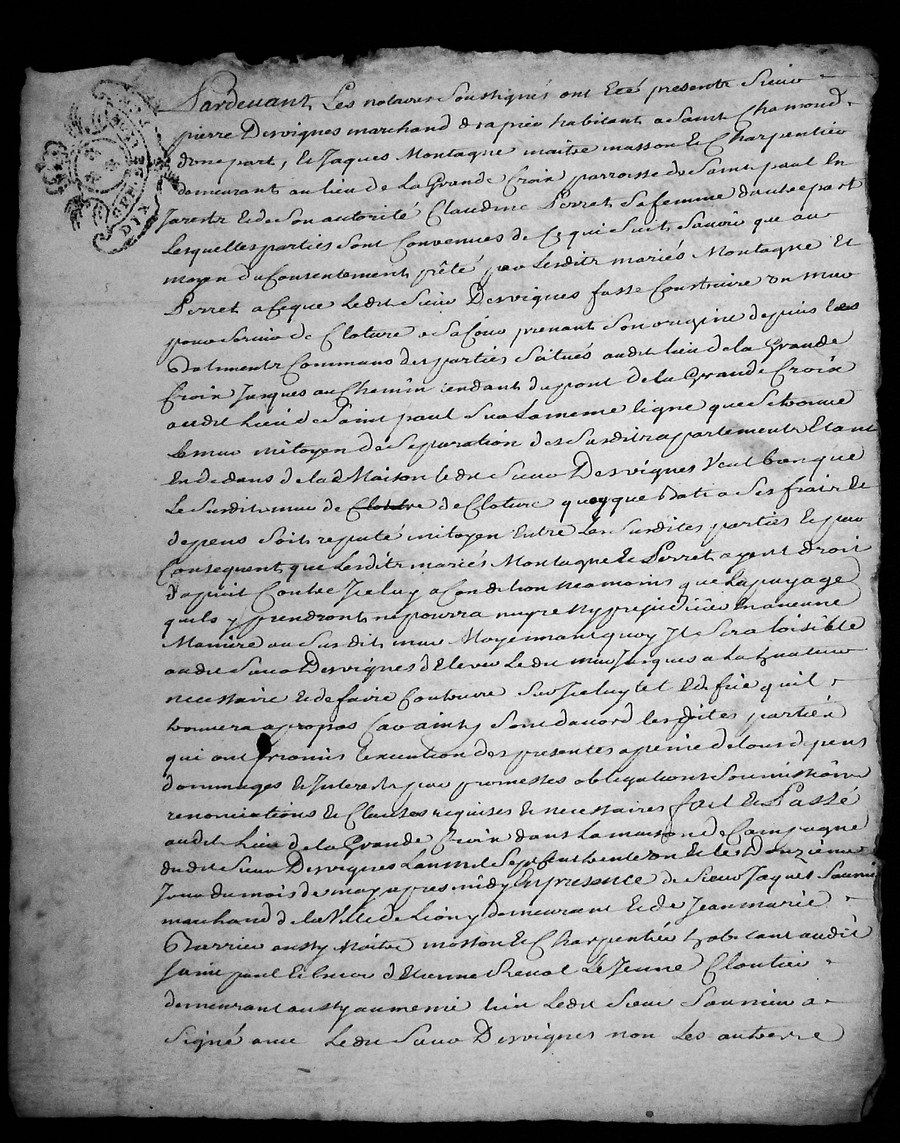 Pardevant Les notaires Soussignés ont Eté présents Sieur
pierre Desvignes marchand drapier habitant a Saint Chamond
dune part, et Jaques Montagne maitre masson et Charpentier
demeurant au lieu de La Grande Croix parroisse de Saint paul En
Jarestz et de Son autorité Claudine Perret Sa femme dautre part
Lesquelles parties Sont Convenues de Ce qui Suit Savoir que au
moyen du Consentement prêté par Lesdits mariés Montagne Et
Perret a Ceque Ledit Sieur Desvignes fasse Construire un mur
pour Servir de Cloture a Sa Cour prenant Son origine depuis Les
Batiments Communs des parties Situés audit lieu de la Grande
Croix Jusques au Chemin tendant du pont de la Grande Croix
audit Lieu de Saint paul Sur La meme ligne que Se trouve
Le mur mitoyen de Separation des Susdits appartements Etant
En dedans de la Maison ledit Sieur Desvignes Veut bien que
Le Susdit mur de Clotdre de Cloture quoyque Bati a Ses frais Et
depens Soit reputé mitoyen Entre Les Susdites parties Et par
Consequent que Lesdits mariés Montagne Et Perret ayent droit
dapuit Contre Iceluy a Condition neamoins que Lapuyage
quils y prendront ne pourra nuyre Ny prejudicier En aucune
Maniere au Susdit mur Moyennant quoy Il Sera loisible
audit Sieur Desvignes d'Elever Ledit mur Jusques a La hauteur
necessaire Et de faire Couvrir Sur Iceluy tel Edifice quil
trouvera a propos Car ainsy Sont dacord lesdites parties
qui ont promis Execution des presentes a peine de tous depens
dommages Et Interets par promesses obligations Soumissions
renonciations Et Clauses requises Et necessaires fait Et Passé
audit Lieu de la Grande Croix dans La maison de Campagne
dudit Sieur Desvignes Lan mil Sept Cent trente un Et le Douzieme
Jour du mois de may apres midy En presence de Sieur Jaques Saunier
marchand de la Ville de Lion y demeurant Et de Jean marie
Barrier aussy Maitre masson Et Charpentier habitant audit
Saint paul Et Encor d'Etienne Chevol Le Jeune Cloutier
demeurant aussy au meme lieu Ledit Sieur Saunier a
Signé avec Ledit Sieur Desvignes non Les autres
GEN DE
DIX